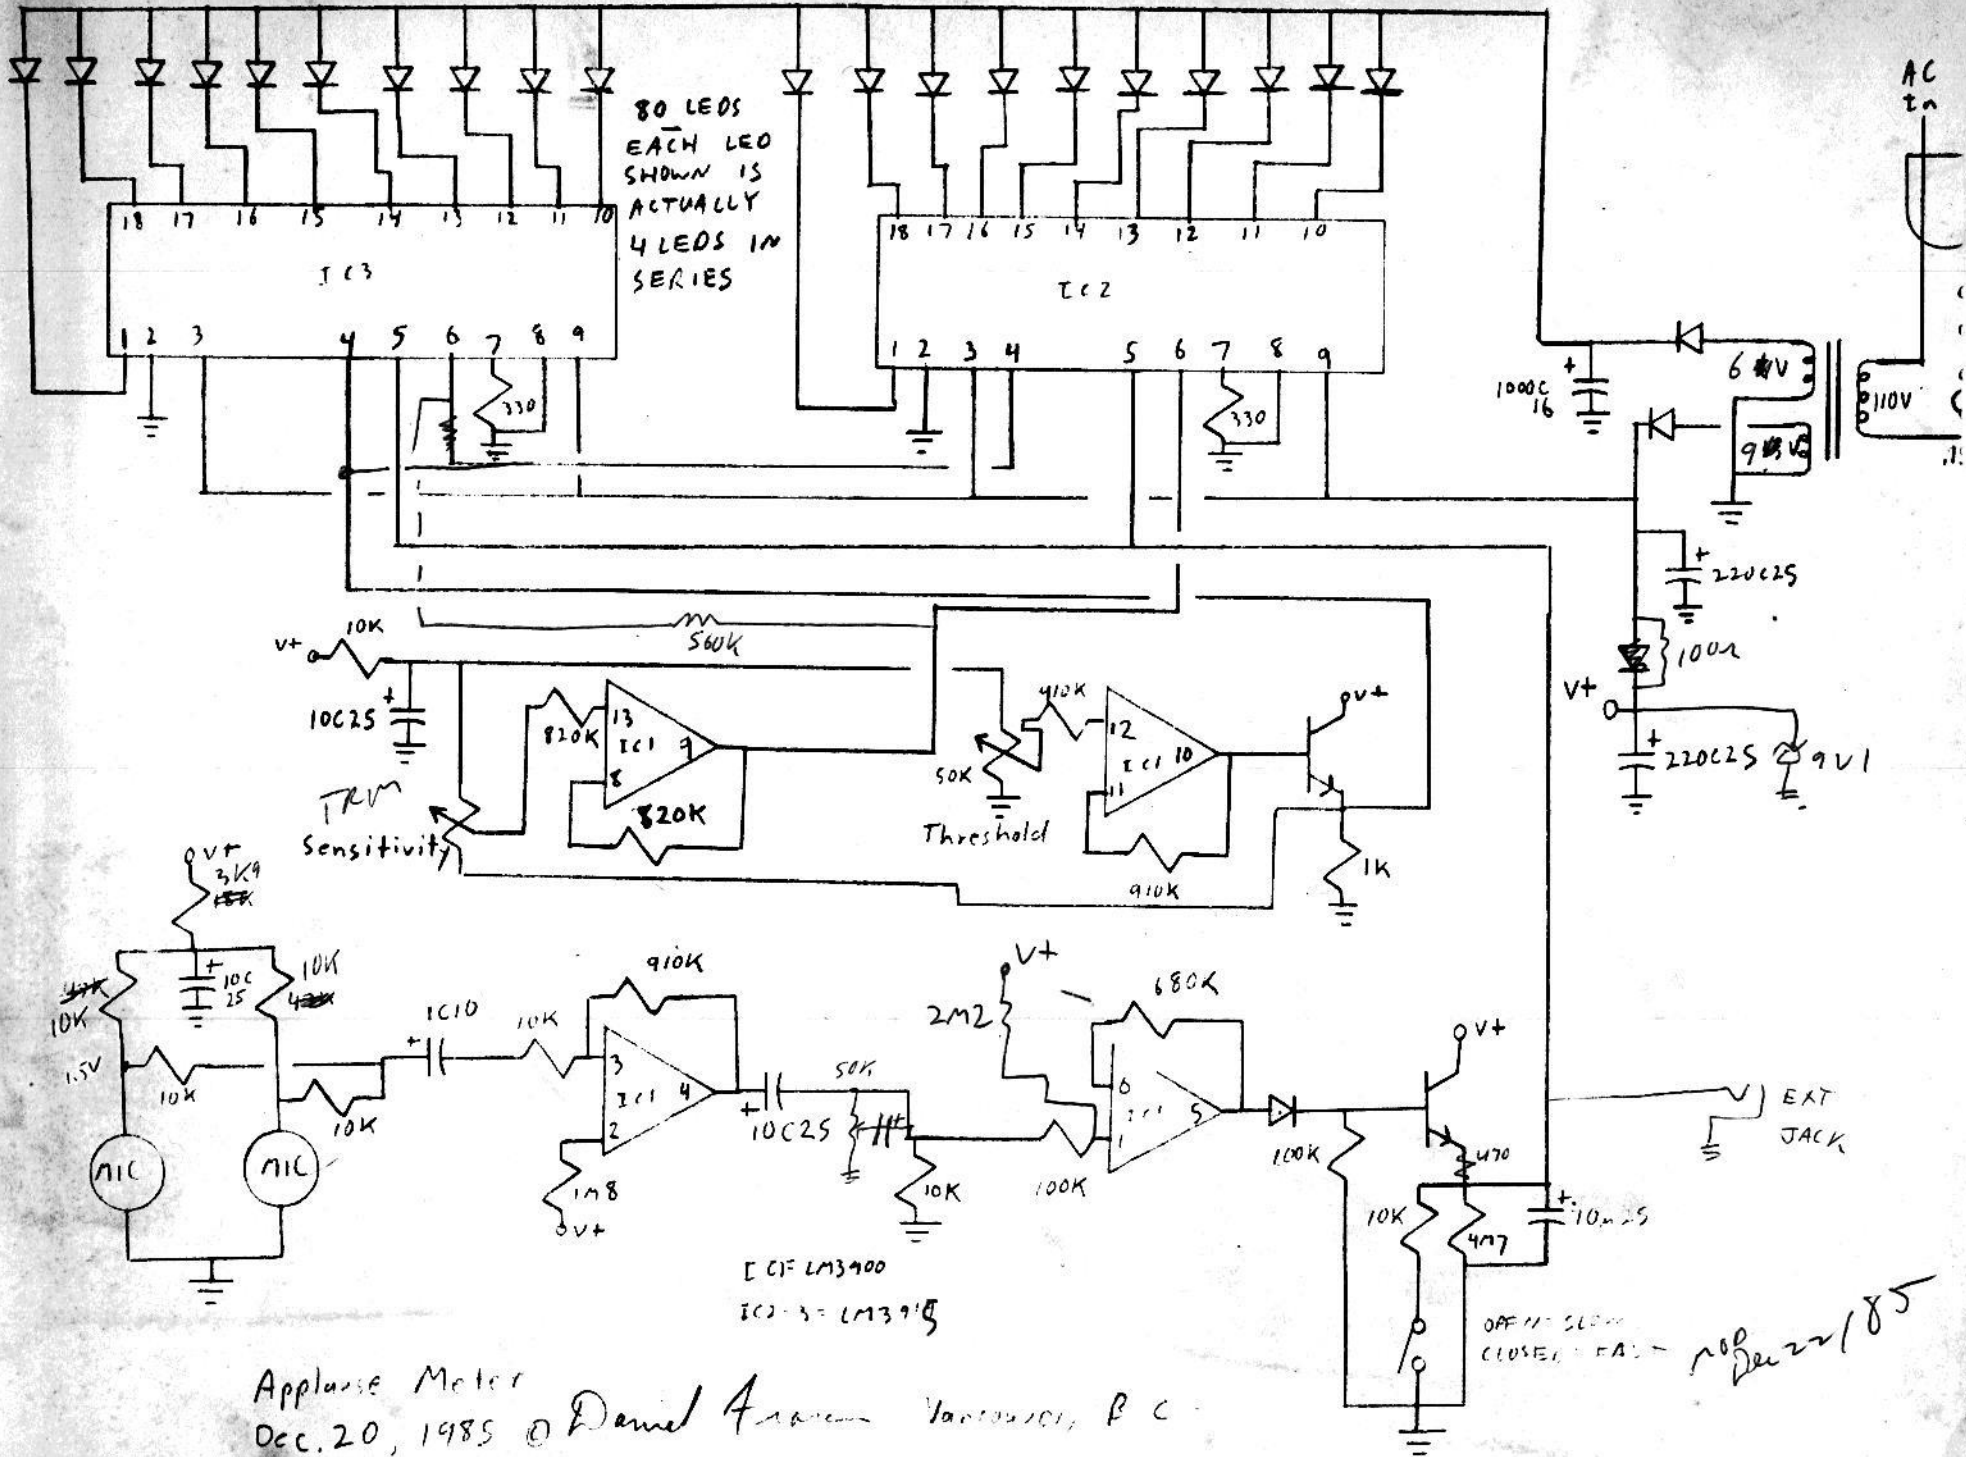 80 LEDS
EACH LED
SHOWN IS
ACTUALLY
4 LEDS IN
SERIES
AC
In
18 17 16 15 14 13 12 11 10
IC3
1 2 3 4 5 6 7 8 9
330
18 17 16 15 14 13 12 11 10
IC2
1 2 3 4 5 6 7 8 9
330
1000C
16
6 V
9 V
110V
220C25
100Ω
V+
220C25
9V1
560K
V+
10K
10C25
820K
13
IC1
9
8
820K
TRIM
Sensitivity
50K
Threshold
910K
12
IC1
10
11
910K
V+
1K
V+
3K9
10K
10C
25
10K
1.5V
10K
10K
MIC
MIC
1C10
10K
910K
3
IC1
4
2
1M8
V+
10C25
50K
10K
V+
2M2
100K
680K
6
IC1
5
1
100K
V+
470
10K
4M7
10µ25
EXT
JACK
IC1= LM3900
IC2-3= LM3915
OPEN= SLOW
CLOSED= FAST
Dec 22/85
Applause Meter
Dec. 20, 1985 © Daniel Vancouver, B C